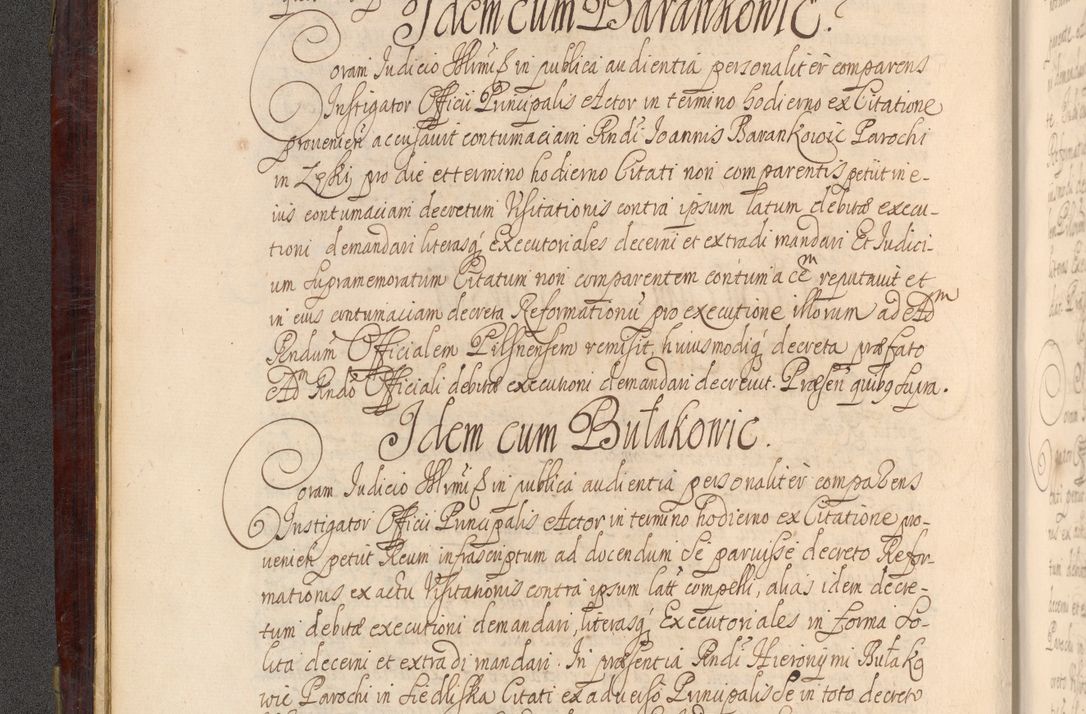 Idem cum Barankowic.
Coram Judicio Illrmi in publica audientia personaliter comparens
Instigator Officii Principalis Actor in termino hodierno ex Citatione
provenien accusavit contumaciam Rndi Joannis Barankowic Parochi
in pro die et termino hodierno Citati non comparentis petiit in e-
ius contumaciam decretum Visitationis contra ipsum latum debitæ execu-
tioni demandari literasq Executoriales decerni et extradi mandari Et Judici-
um supramemoratum Citatum non comparentem contumacem reputavit et
in eius contumaciam decreta Reformationu pro executione illorum ad Adm
Rndum Officialem Pilsnensem remisit, huiusmodiq decreta præfato
Adm Rndo Officiali debitæ executioni demandari decrevit. Præsen quibq supra.
Idem cum Bułakowic.
Coram Judicio Illrmi in publica audientia personaliter comparens
Instigator Officii Principalis Actor in termino hodierno ex Citatione pro-
venien petiit Reum infrascriptum ad docendum se paruisse decreto Refor-
mationis ex actu Visitationis contra ipsum latt compelli, alias idem decre-
tum debitæ executioni demandari, literasq Executoriales in forma so-
lita decerni et extradi mandari. In præsentia Rndi Hieronymi Bułako
wic Parochi in Siedliska Citati ex adverso Principalis se in toto decreto